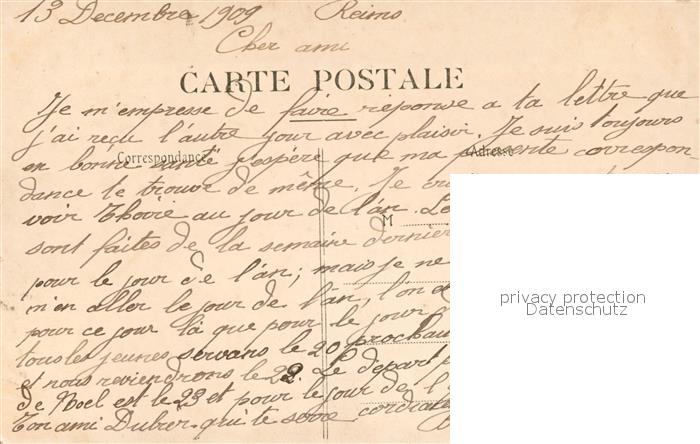 13 Decembre 1909 Reims
Cher ami
CARTE POSTALE
Je m'empresse de faire reponse a ta lettre que
j'ai reçu l'autre jour avec plaisir. Je suis toujours
en bonne santé j'espère que ma presente correspon
Correspondance Adresse
dance le trouve de même. Je
voir au jour de l'an.
M
sont faites de la semaine
pour le jour de l'an; mais je ne
m'en aller le jour de l'an, l'on
pour ce jour là que pour le jour
tous les jeunes servans le 20 prochain
et nous reviendrons le 22. Le depart
de Noel est le 23 et pour le jour de l'
Ton ami qui te serre
privacy protection
Datenschutz